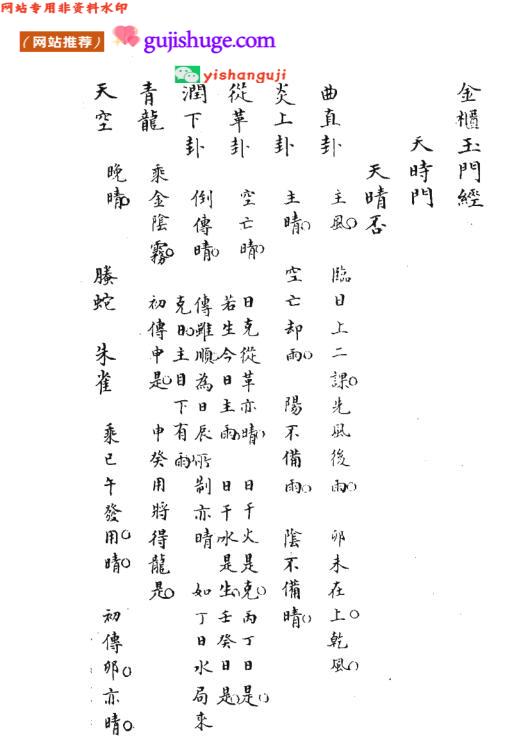 网站专用非资料水印
（网站推荐）
gujishuge.com
yishanguji
金櫃玉門經
天時門
天晴否
曲直卦 主風 臨日上二課先風後雨 卯未在上乾風
炎上卦 主晴 空亡却雨 陽不備雨 陰不備晴
從革卦 空亡晴 日克從革亦晴 日干火是克丙丁日是
若生今日主雨 日干水是生壬癸日是
潤下卦 倒傳晴 傳雖順為日辰所制亦晴 如丁日水局來
克日主目下有雨
青龍 乘金陰霧 初傳申是 申癸用將得龍是
天空 晚晴 螣蛇 朱雀 乘巳午發用晴 初傳卯亦晴